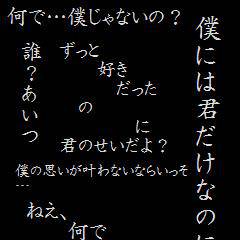 何で…僕じゃないの?
僕には君だけなのに
誰?あいつ
ずっと
好き
だった
の
に
君のせいだよ?
僕の思いが叶わないならいっそ
---
ねえ、
何で